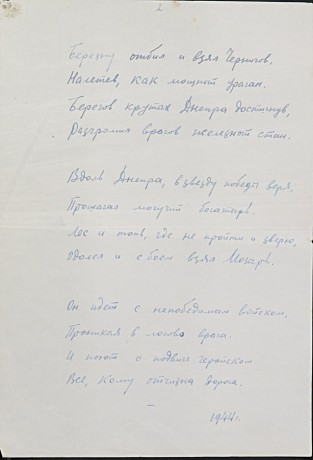 2
Березну отбил и взял Чернигов,
Налетев, как мощный ураган.
Берегов крутых Днепра достигнув,
Разгромил врагов железный стан.
Вдоль Днепра, в звезду победы веря,
Прошагал могучий богатырь.
Лес и топь, где не пройти и зверю,
Одолел и с боем взял Мозырь.
Он идет с непобедимым войском,
Проникая в логово врага.
И поют о подвиге геройском
Все, кому отчизна дорога.
–
1944 г.